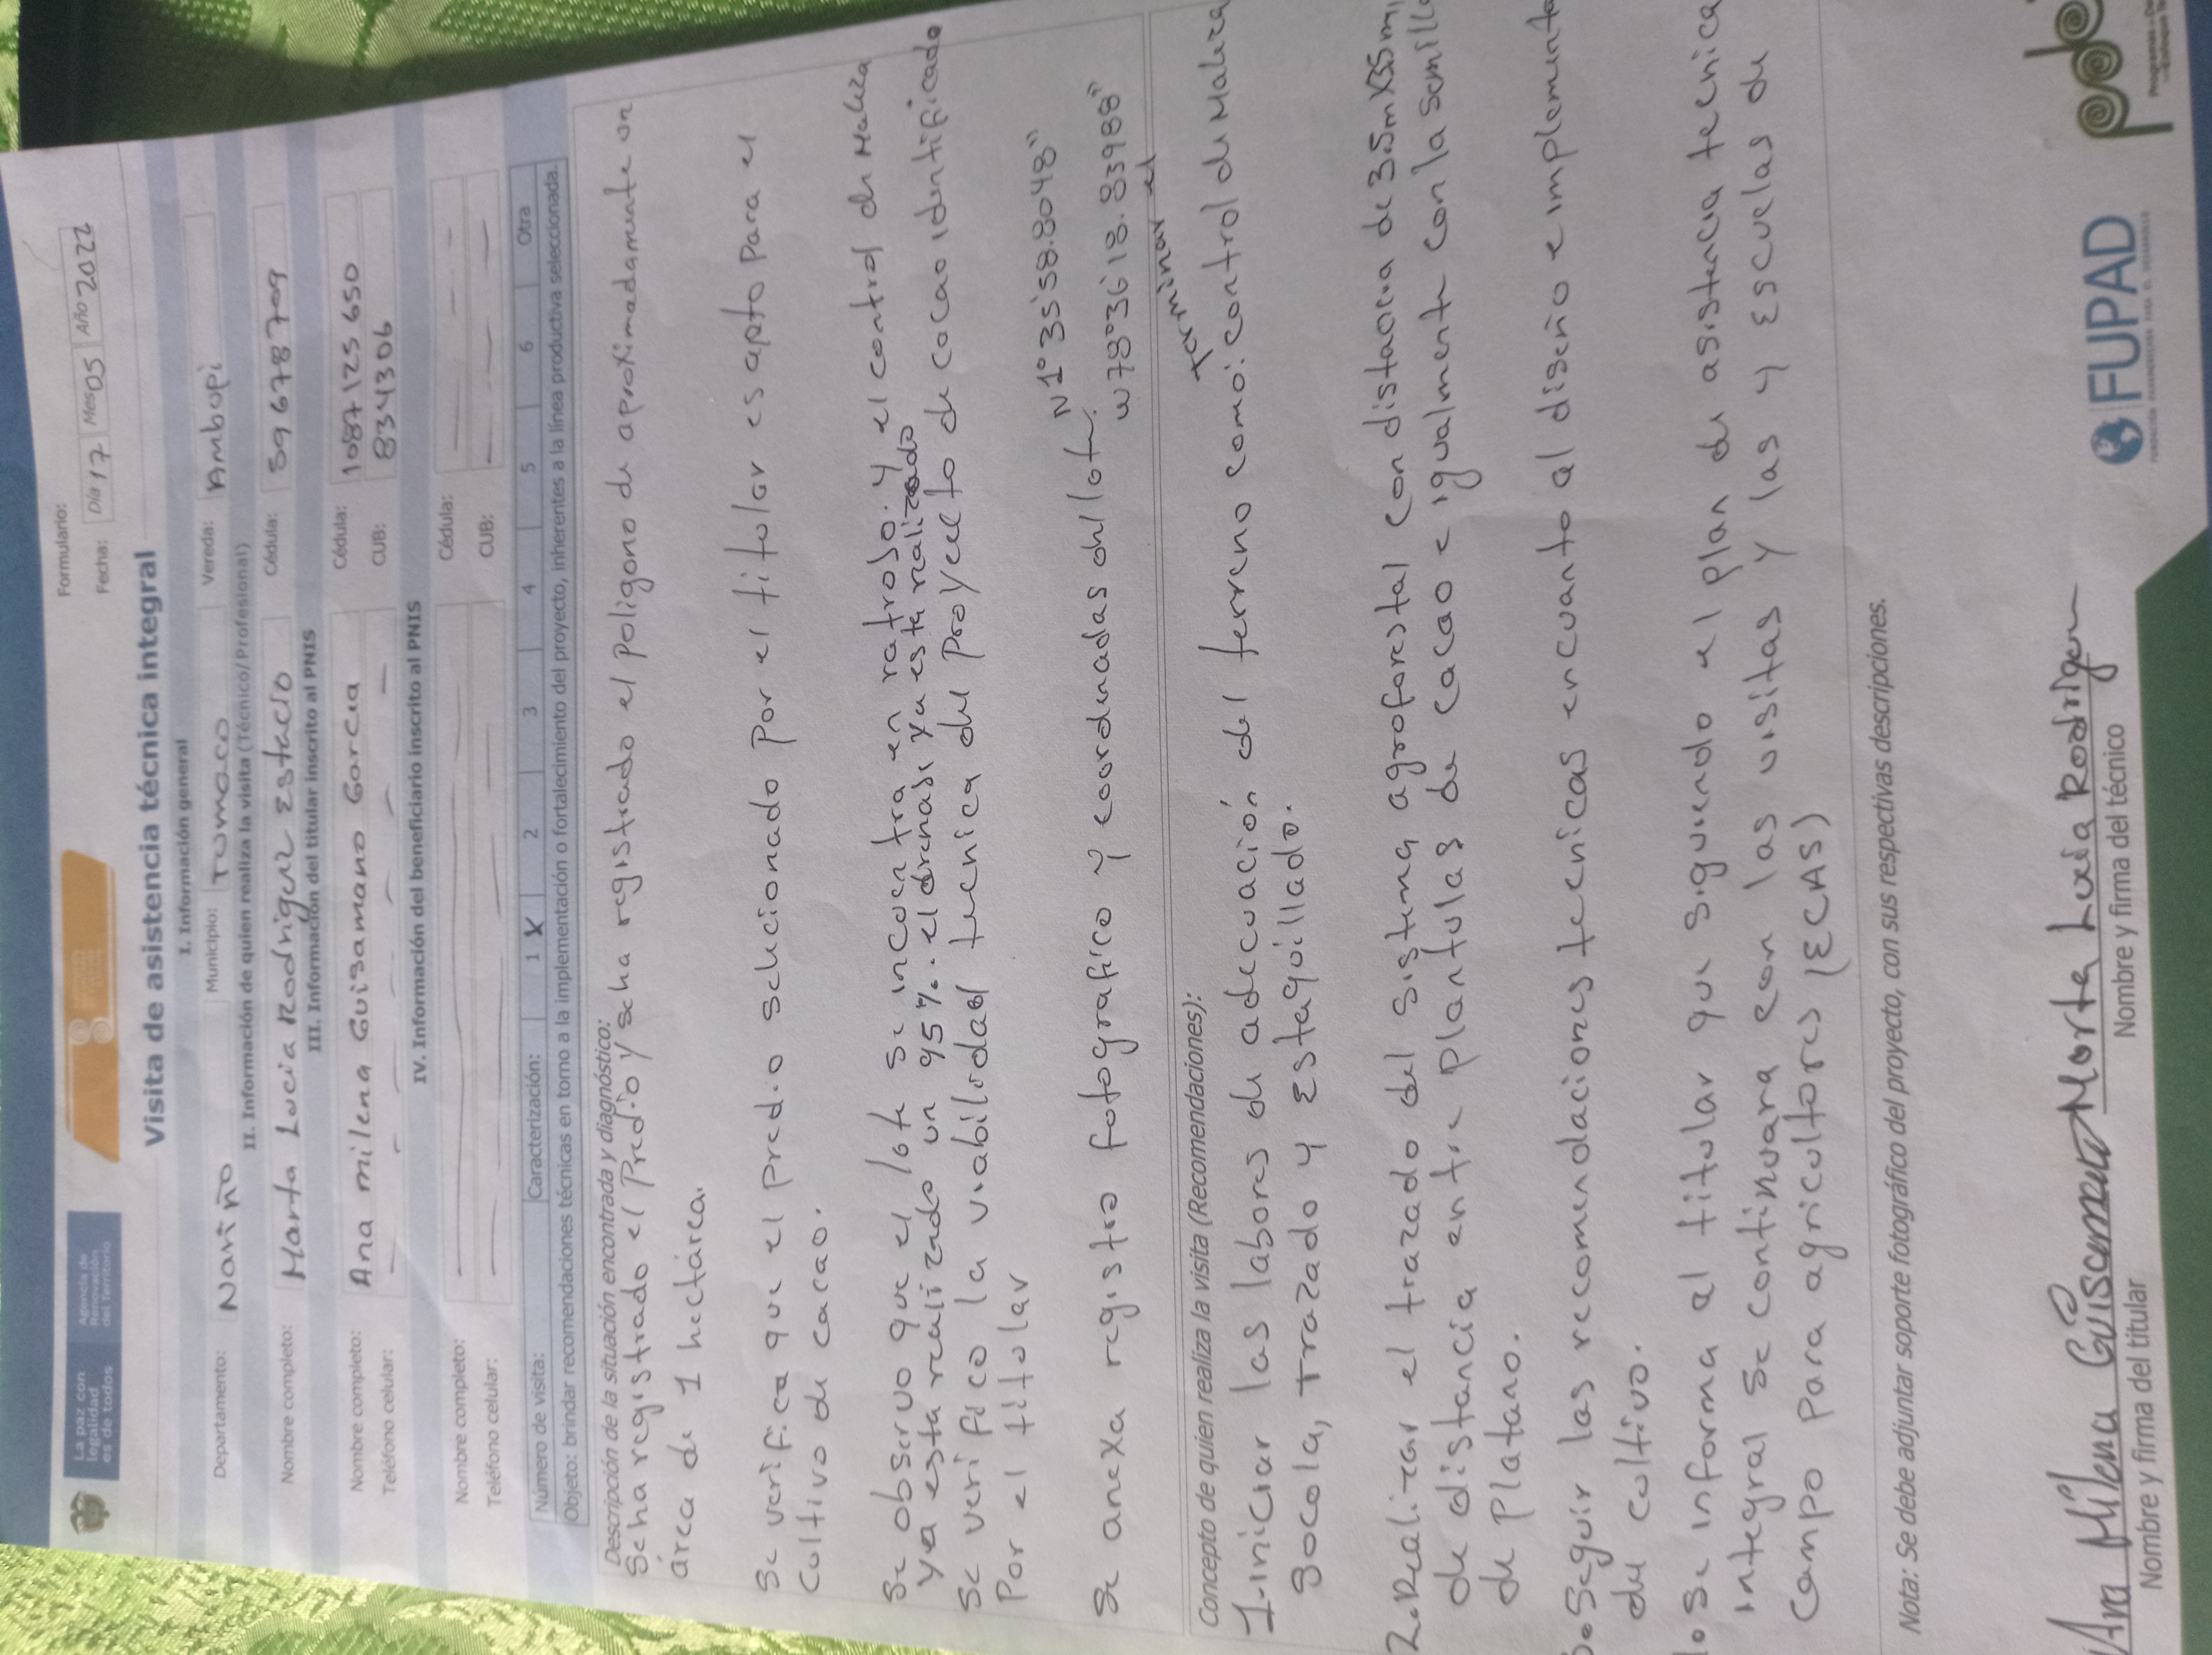 La paz con
legalidad
es de todos
Agencia de
Renovación
del Territorio
Formulario:
Fecha: Día 17 Mes 05 Año 2022
Visita de asistencia técnica integral
I. Información general
Departamento: Nariño Municipio: Tumaco Vereda: Ambopi
II. Información de quien realiza la visita (Técnico/Profesional)
Nombre completo: Marta Lucia Rodriguez Estacio Cédula: 59678709
III. Información del titular inscrito al PNIS
Nombre completo: Ana milena Guisamano Garcia Cédula: 1087125650
Teléfono celular: CUB: 834306
IV. Información del beneficiario inscrito al PNIS
Nombre completo: Cédula:
Teléfono celular: CUB:
Número de visita: Caracterización: 1 X 2 3 4 5 6 Otra
Objeto: brindar recomendaciones técnicas en torno a la implementación o fortalecimiento del proyecto, inherentes a la línea productiva seleccionada.
Descripción de la situación encontrada y diagnóstico:
Se ha registrado el Predio y se ha registrado el poligono de aproximadamente un
área de 1 hectárea.
Se verifica que el predio selucionado por el titular es apto para el
Cultivo de cacao.
Se observo que el lote se incuentra en ratroso. y el control de Maleza
ya esta realizado un 95%. el drenase ya esta realizado
Se verifico la viabilidad tecnica del Proyecto de cacao identificado
Por el titular
Se anexa registro fotografico y coordenadas del lote. N 1°35'58.8048"
W 78°36'18.83988"
Concepto de quien realiza la visita (Recomendaciones):
terminar el
1-Iniciar las labores de adecuación del terreno como: control de Maleza
Socola, trazado y Estaquillado.
2.Realizar el trazado del sistema agroforestal con distancia de 3.5m X35m,
de distancia entre plantulas de cacao e igualmente con la semilla
de Platano.
Seguir las recomendaciones tecnicas encuanto al diseño e implementa
de cultivo.
Se informa al titular que siguiendo el plan de asistencia tecnica
integral se continuara con las visitas y las y Escuelas de
Campo Para agricultores (ECAS)
Nota: Se debe adjuntar soporte fotográfico del proyecto, con sus respectivas descripciones.
Ana Milena Guisamano
Nombre y firma del titular
Marta Lucia Rodriguez
Nombre y firma del técnico
FUPAD